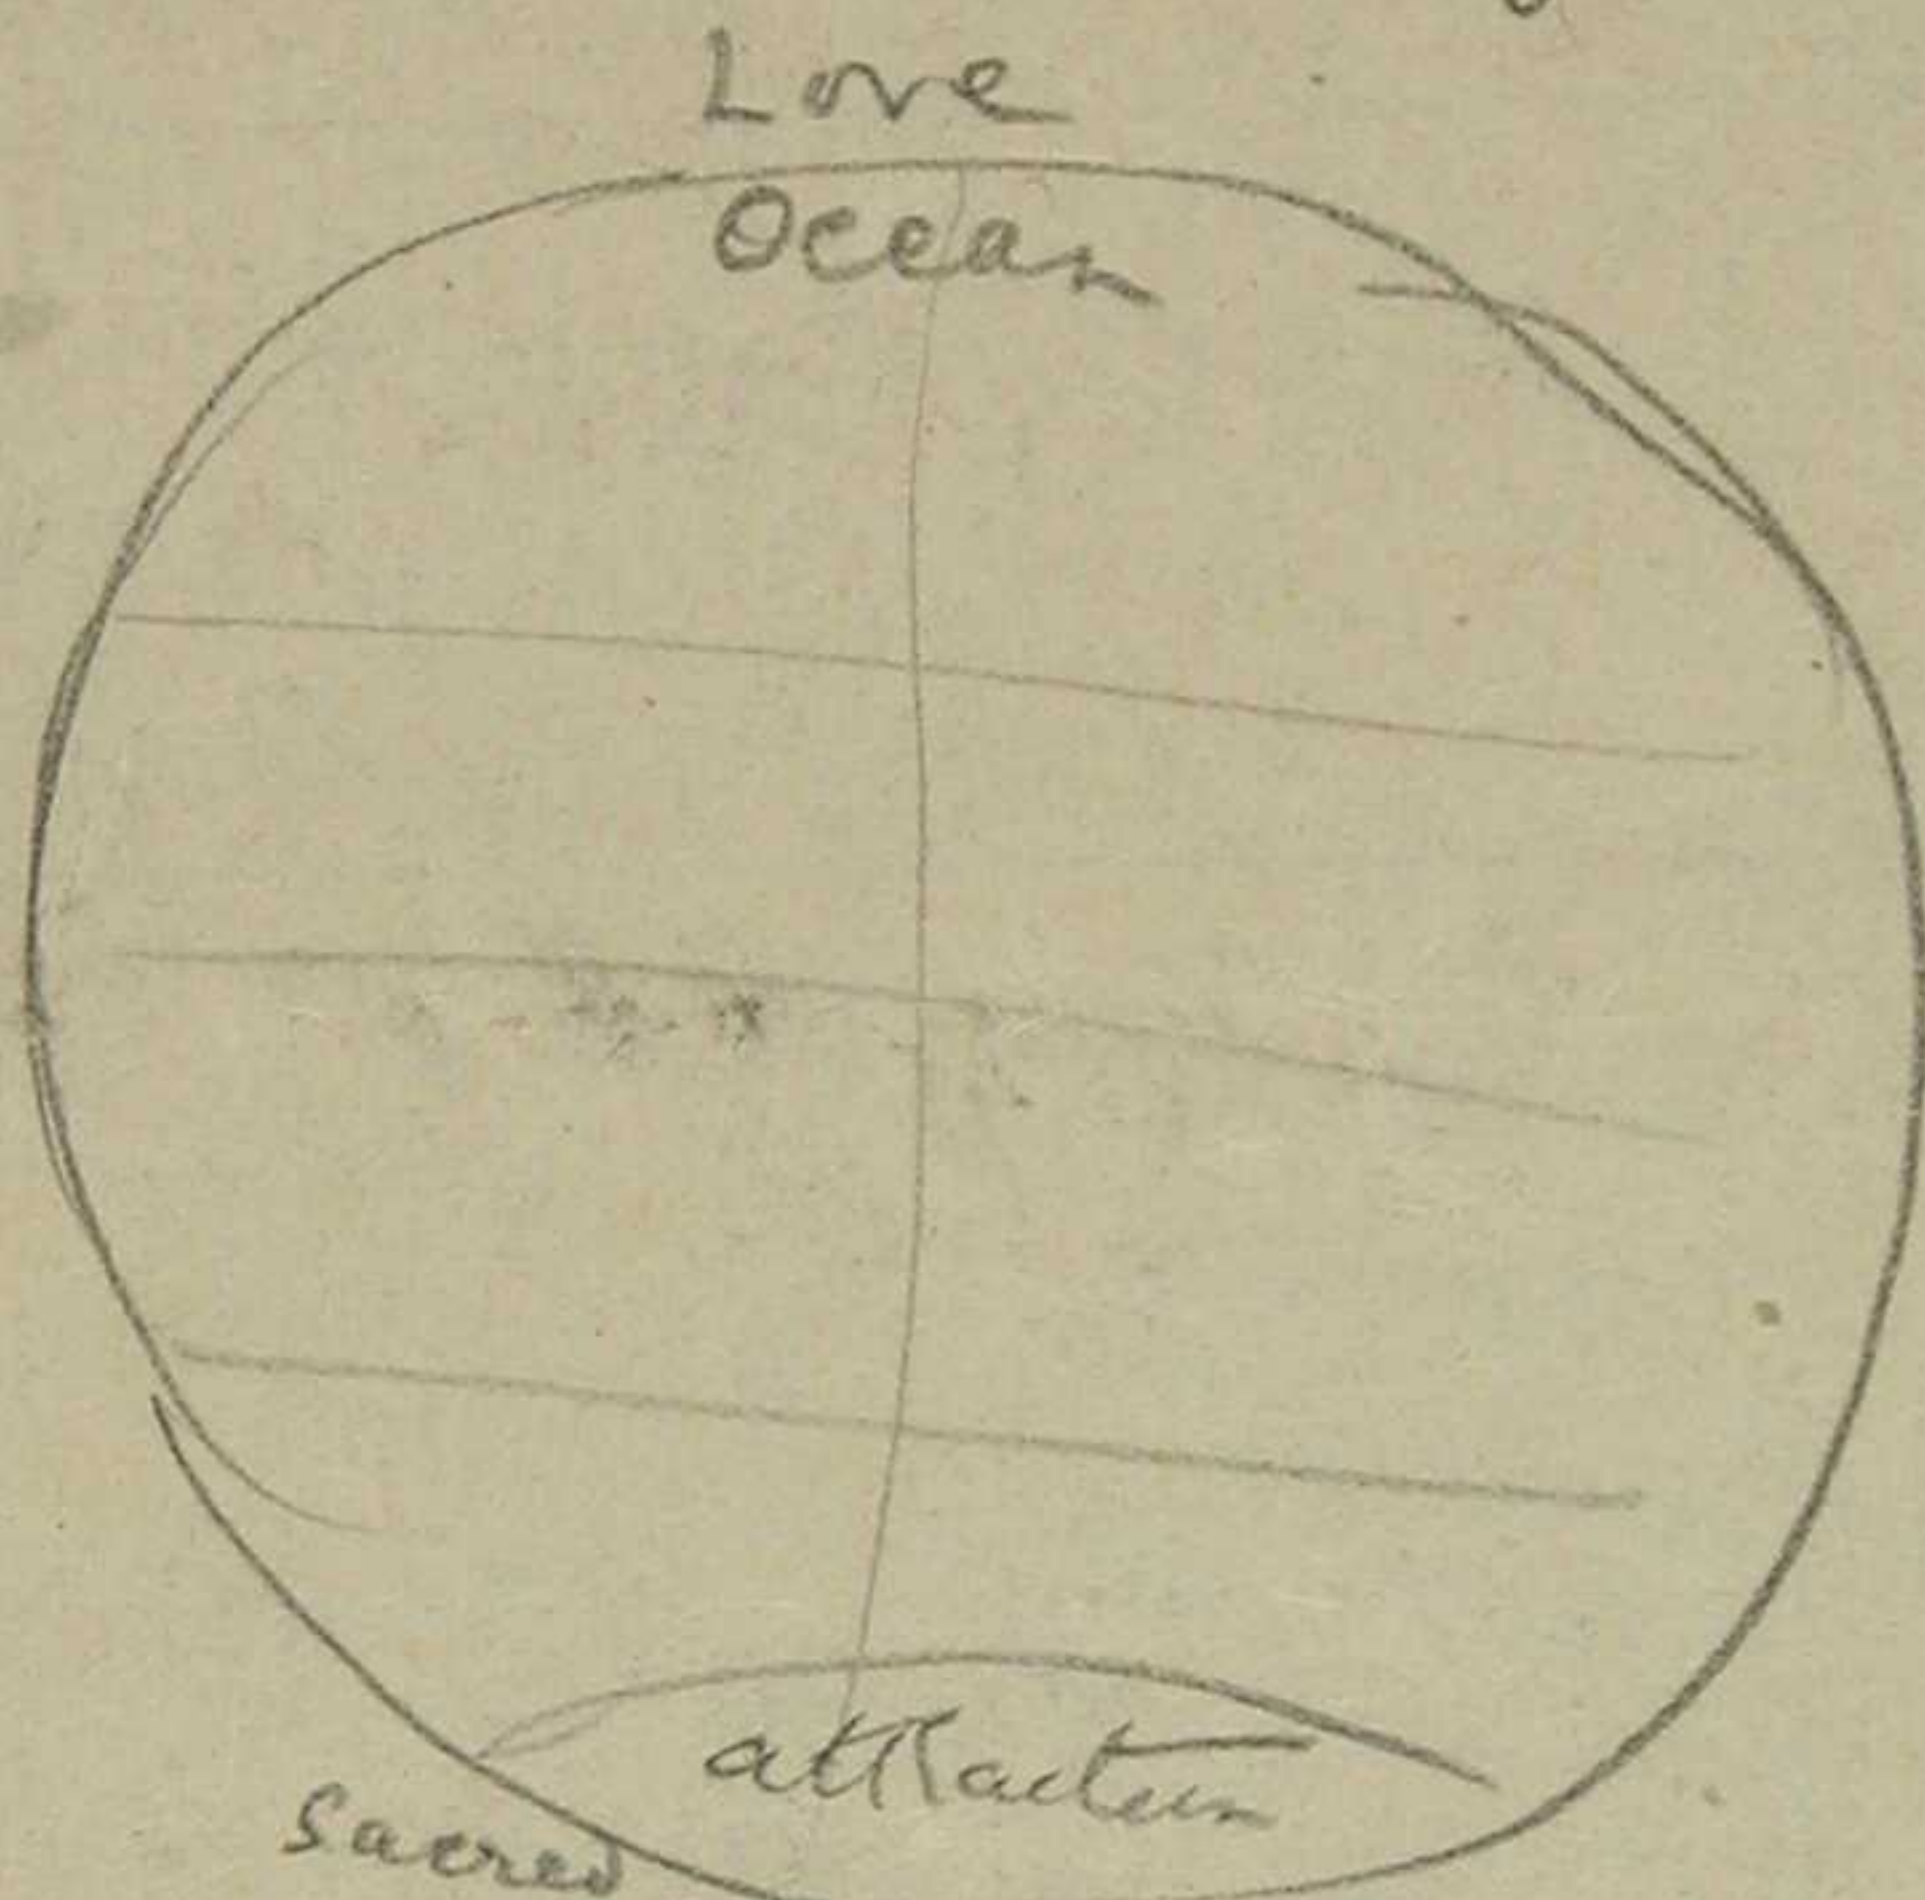 Love
Ocean
attraction
Sacred